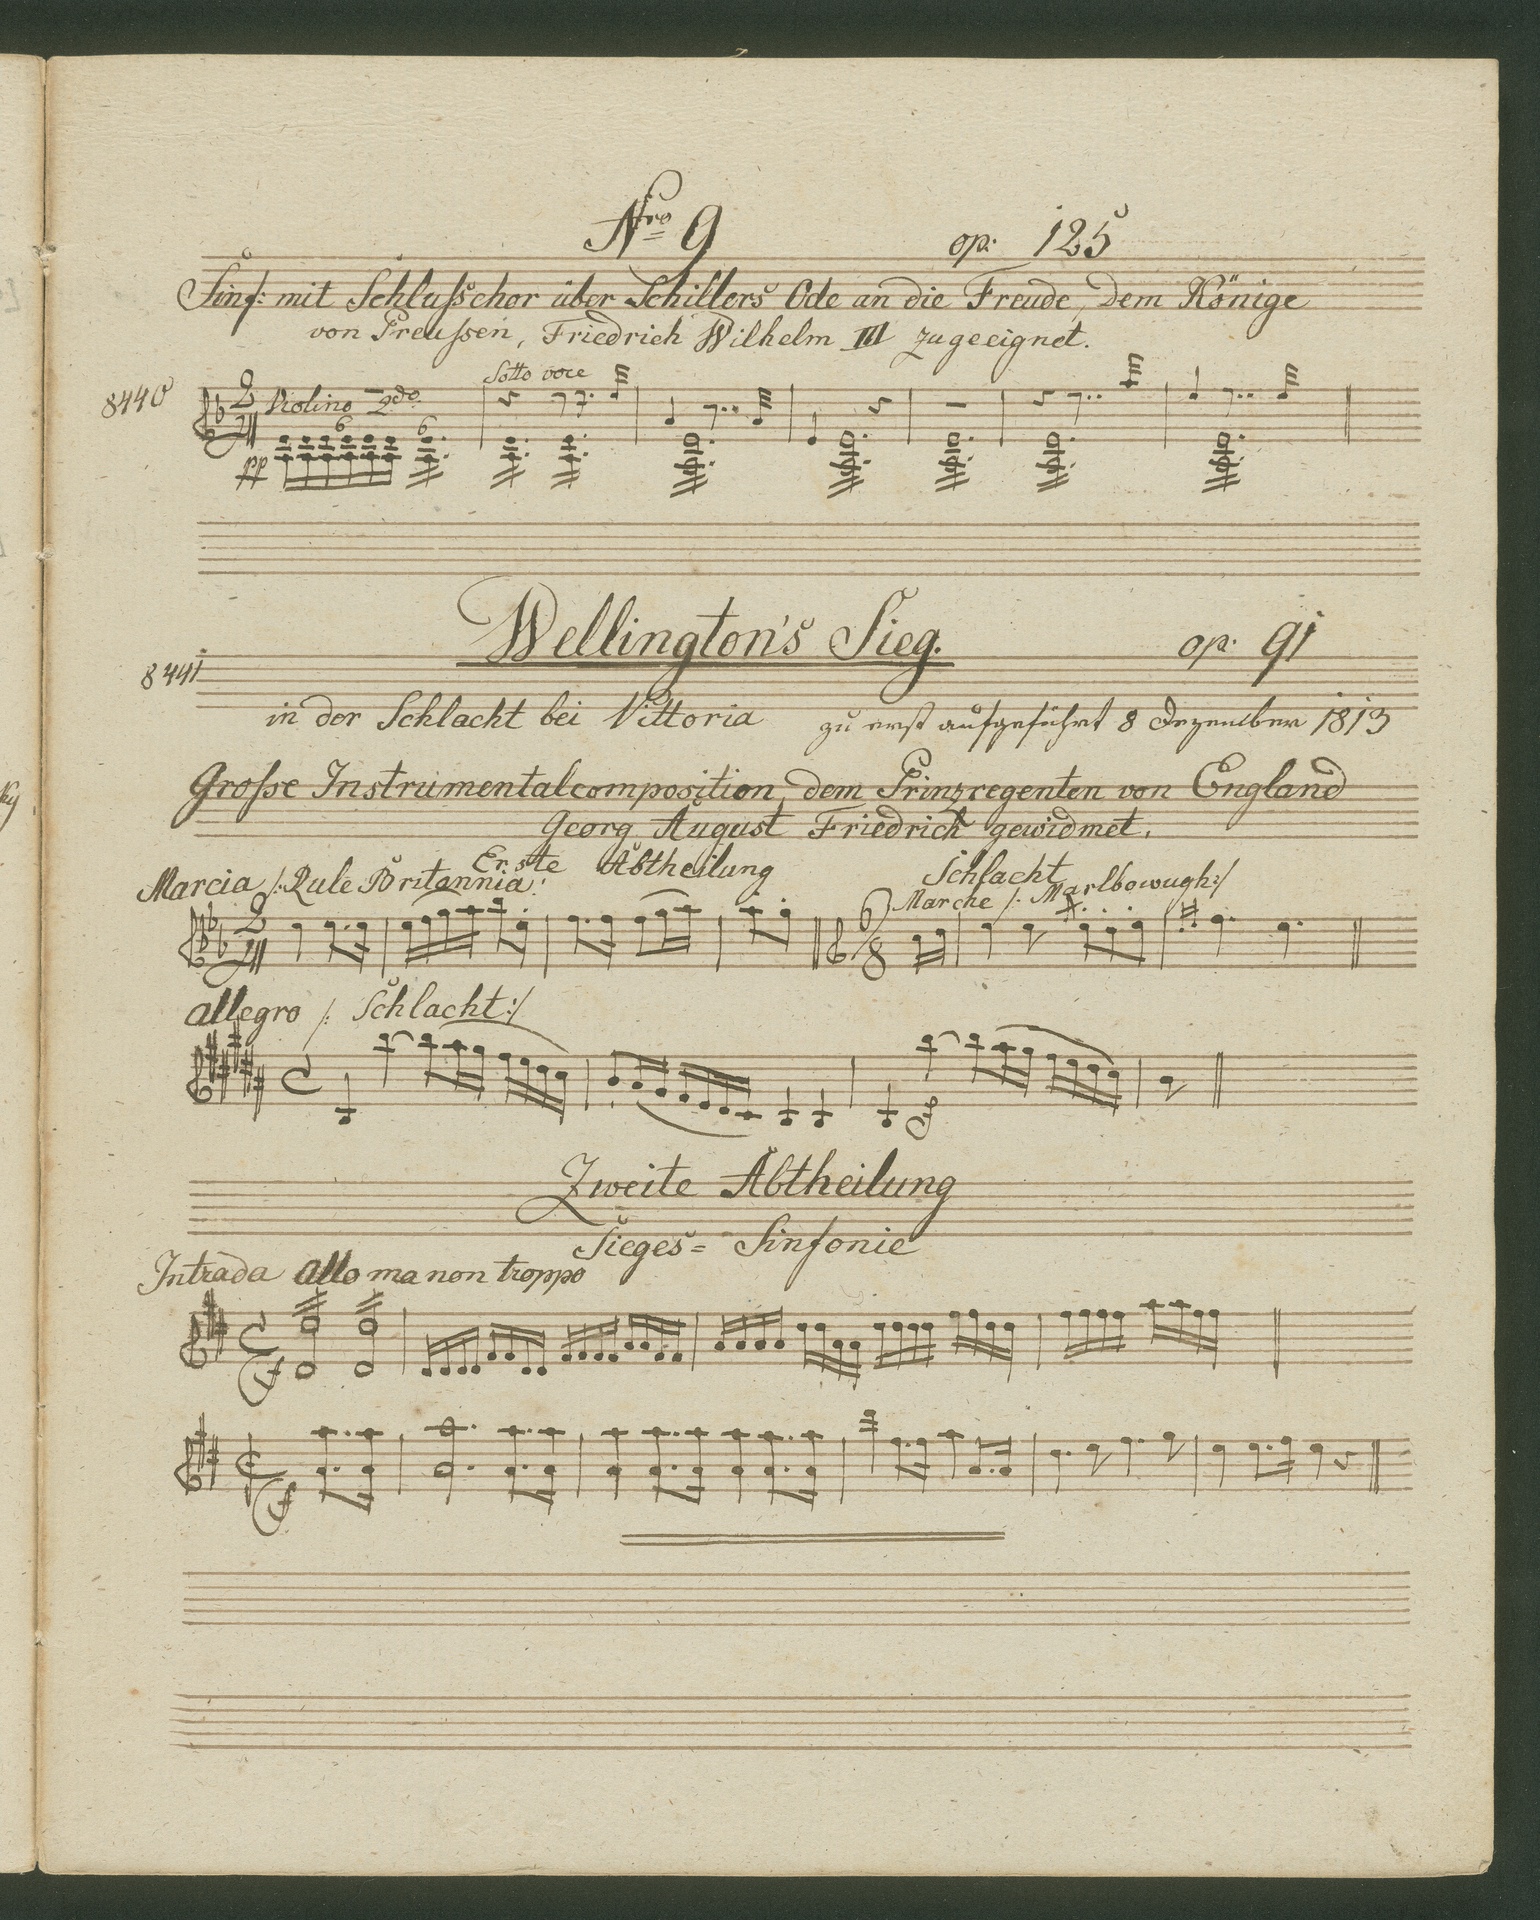 Nro 9 op: 125
Sinf: mit Schlußchor über Schillers Ode an die Freude, dem Könige
von Preußen, Friedrich Wilhelm III zugeeignet.
8440 Violino 2do. Sotto voce
2
4
6 6
pp
Wellington's Sieg. op: 91
8441
in der Schlacht bei Vittoria zu erst aufgeführt 8 Dezember 1813
Große Instrumentalcomposition, dem Prinzregenten von England
Georg August Friedrich gewidmet.
Erste Abtheilung Schlacht
Marcia /: Rule Britannia: Marche /: Marlbowugh:/
2
4
6
8
allegro /: Schlacht:/
sf
Zweite Abtheilung
Sieges= Sinfonie
Intrada allo ma non troppo
f
f